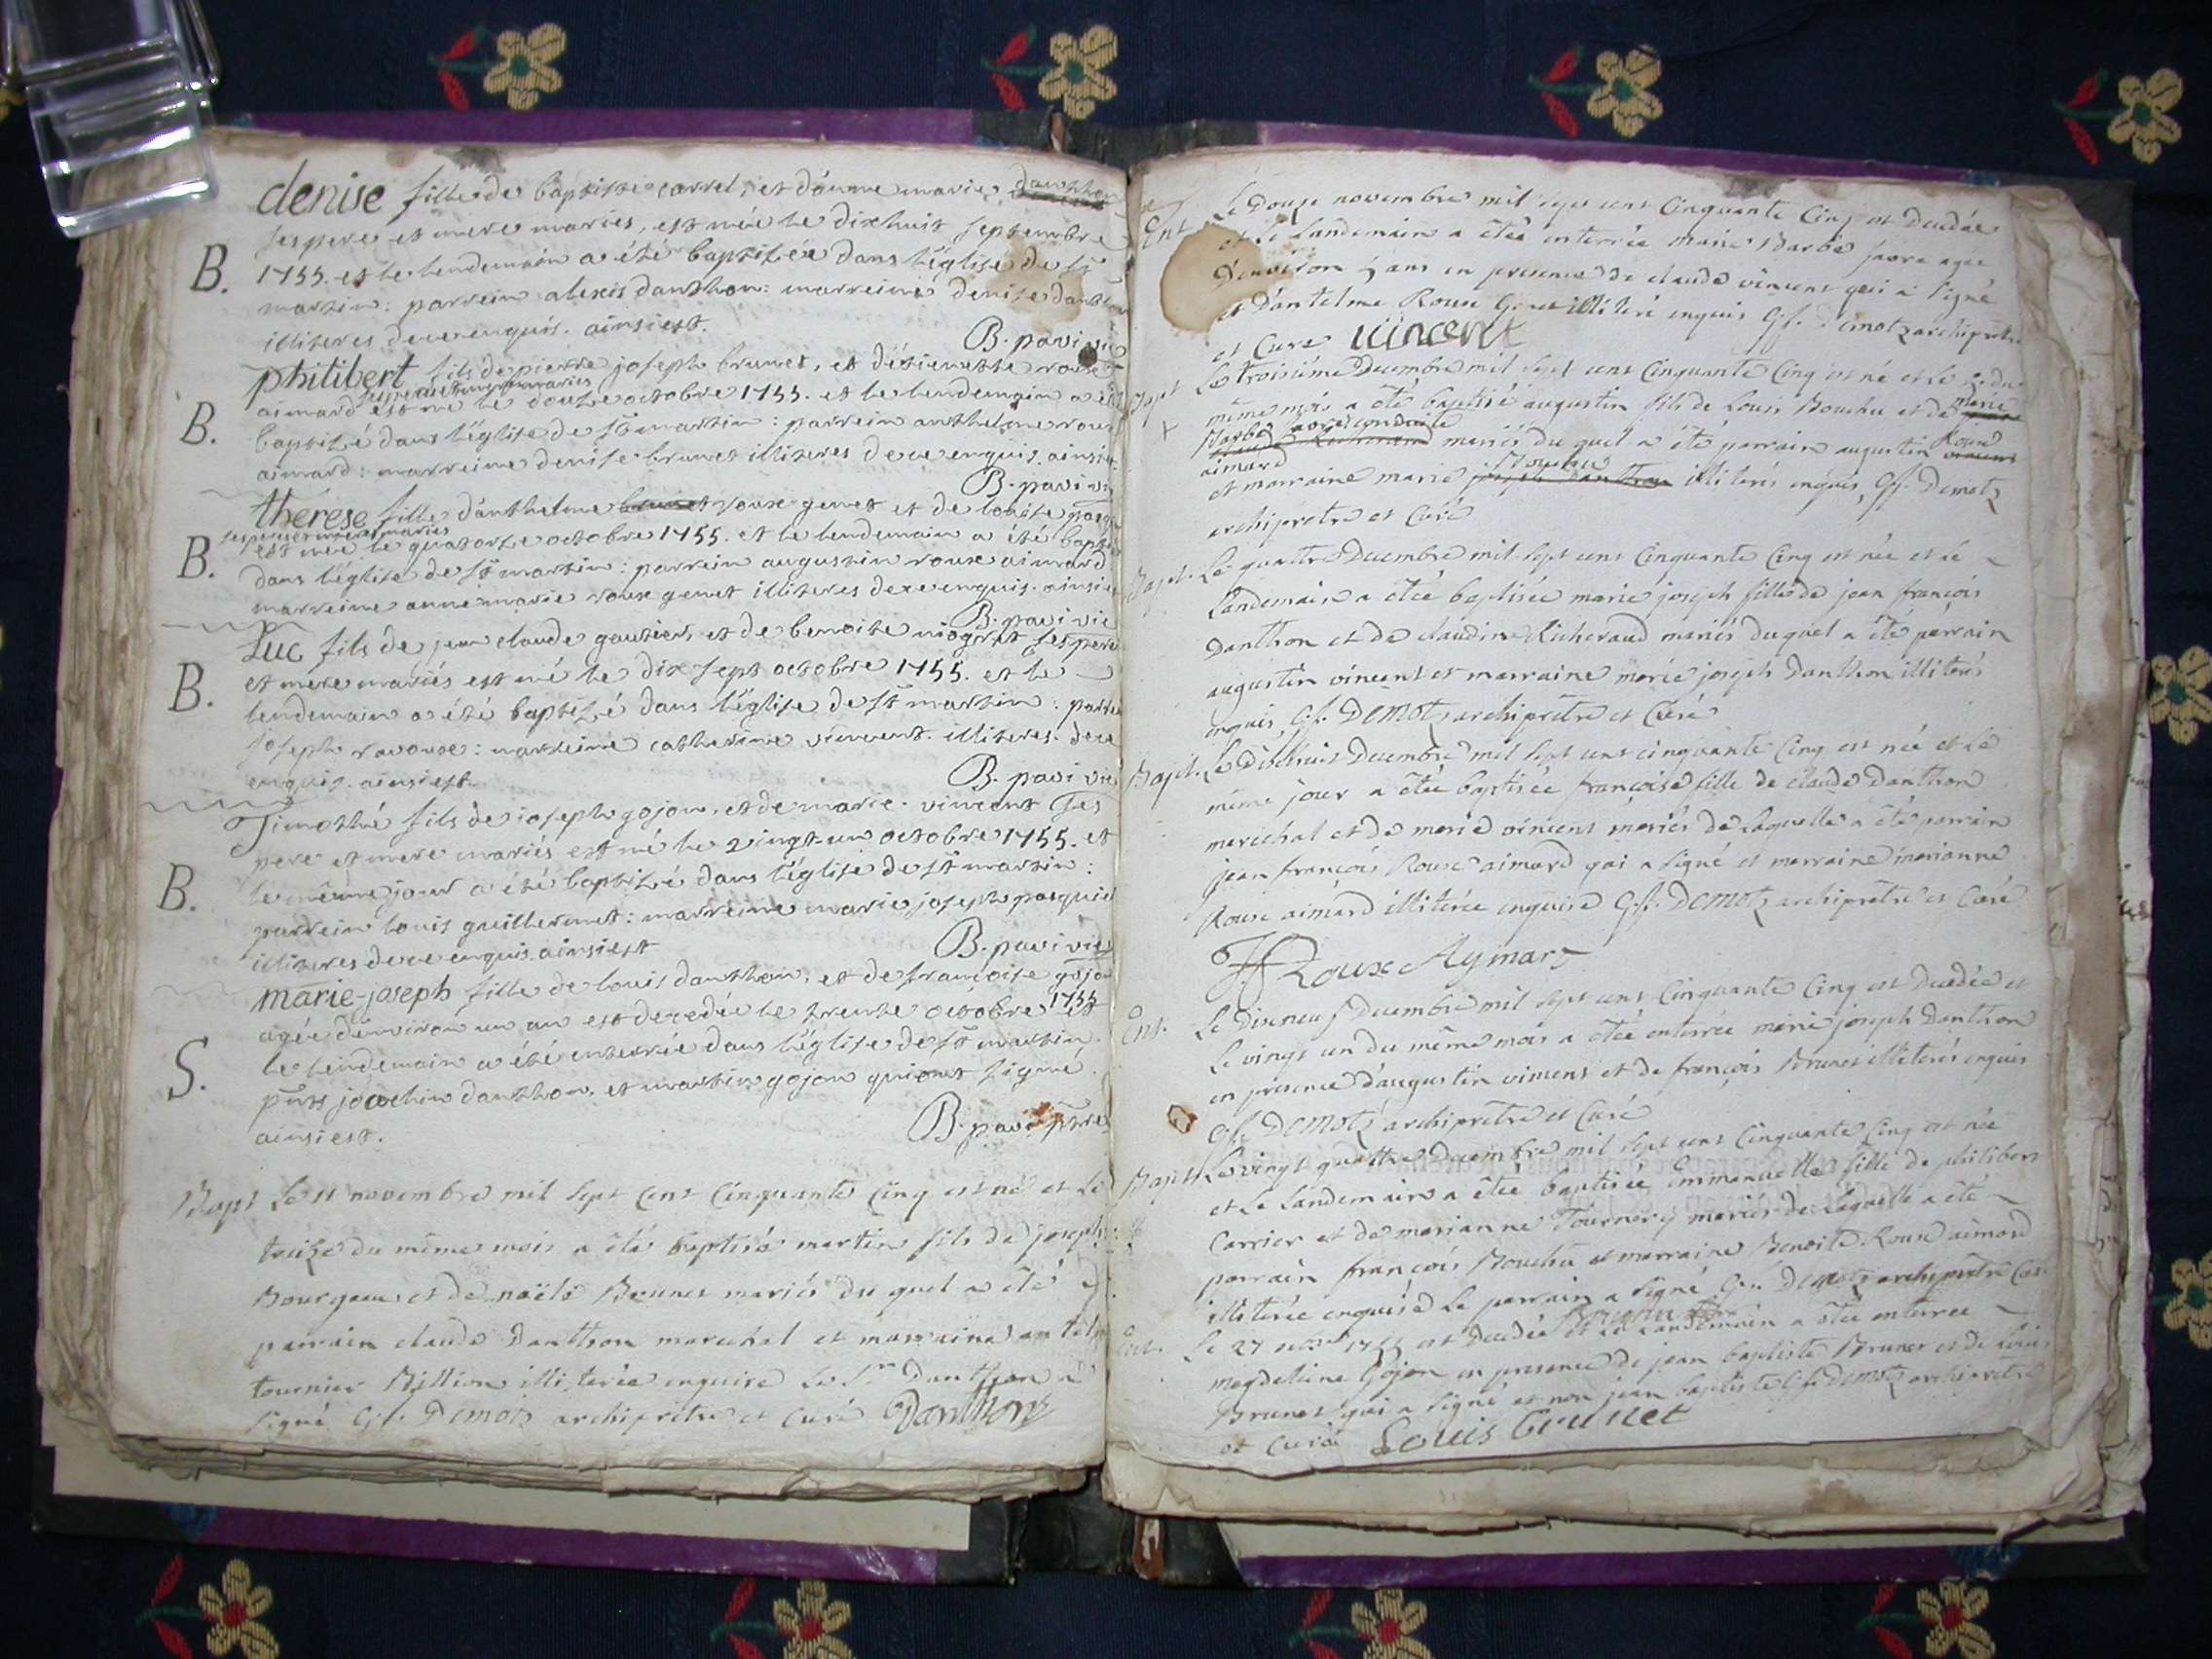 denise fille de baptiste carrel, et d'anne marie danthon
ses pere et mere maries, est née le dixhuit septembre
B. 1755. et le lendemain a été baptizée dans l'église de st
martin: parrein alexis danthon: marreine denise danthon
illiteres de ce enquis. ainsi est.
B. pavi vic
philibert fils de pierre joseph brunet, et d'étiennette roux
ses pere et mere maries
B. aimard est né le douze octobre 1755. et le lendemain a été
baptizé dans l'église de st martin: parrein anthelme roux
aimard: marreine denise brunet illiteres de ce enquis. ainsi
B. pavi vic
therese fille d'anthelme brunet roux genet et de
ses pere et mere maries
B. est née le quatorze octobre 1755. et le lendemain a été bapti
dans l'église de st martin: parrein augustin roux aimard
marreine anne marie roux genet illiteres de ce enquis. ainsi
B. pavi vic
Luc fils de jean claude gautier, et de benoite niogret ses pere
B. et mere mariés est né le dix sept octobre 1755. et le
lendemain a été baptizé dans l'église de st martin: parre
joseph ravoux: marreine catherine vincent. illiteres. de ce
enquis. ainsi est.
B. pavi vic
Timothé fils de joseph gojon, et de marie vincent ses
pere et mere mariés est né le vingt-un octobre 1755. et
B. le même jour a été baptizé dans l'église de st martin:
parrein louis guillermet: marreine marie joseph pasquie
illiteres de ce enquis. ainsi est
B. pavi vic
marie-joseph fille de louis danthon, et de françoise gojon
agée d'environ un an est decedée le trente octobre 1755 et
S. le lendemain a été enterrée dans l'église de st martin.
pnts joachin danthon, et martin gojon qui ont signé.
ainsi est.
B. pavi
Bapt Le 11 novembre mil sept cent cinquante cinq est né et le
treize du même mois a été baptisé martin fils de joseph
Bourgeau et de noële Brunet mariés du quel a été
parrain claude Danthon marechal et marraine
tournier Billion illiterée enquise le sr Danthon a
signé G.f. Demotz archiprêtre et curé Danthon
Ent Le Douze novembre mil sept cent cinquante cinq est decedée
et le landemain a étée enterrée marie Barbe favre agée
d'environ 5 ans en presence de claude vincent qui a signé
et d'antelme Roux Genet illiteré enquis G.f. Demotz archiprêtre
et curé vincent
Bapt Le troisième Decembre mil sept cent cinquante cinq est né et le du
même mois a été baptisé augustin fils de Louis Bouchu et de marie
Barbe
mariés du quel a été parrain augustin Roux
aimard
et marraine marie Bouchu illiterés enquis, G.f. Demotz
archiprêtre et curé
Bapt. Le quattre Decembre mil sept cent cinquante cinq est née et le
landemain a étée baptisée marie joseph fille de jean françois
Danthon et de claudine Richeraud mariés duquel a été parrain
augustin vincent et marraine marie joseph Danthon illiterés
enquis, G.f. Demotz archiprêtre et curé
Bapt. Le Dixhuit Decembre mil sept cent cinquante cinq est née et le
même jour a étée baptisée françoise fille de claude Danthon
marechal et de marie vincent mariés de laquelle a été parrain
jean françois Roux aimard qui a signé et marraine marianne
Roux aimard illiterée enquise G.f. Demotz archiprêtre et curé
Roux Aymard
Ent. Le Dixneuf Decembre mil sept cent cinquante cinq est decedée et
le vingt un du même mois a étée enterrée marie joseph Danthon
en presence d'augustin vincent et de françois Brunet illiterés enquis
G.f. Demotz archiprêtre et curé
Bapt Le vingt quattre Decembre mil sept cent cinquante cinq est née
et le landemain a étée baptisée emmanuelle fille de philibert
Carrier et de marianne Tournery mariés de laquelle a été
parrain françois Bouchu et marraine Benoite Roux aimard
illiterée enquise le parrain a signé G.f. Demotz archiprêtre curé
Bouchu
Ent. Le 27 1755 est decedée et le landemain a étée enterrée
magdeleine Gojon en presence de jean baptiste Brunet et de Louis
Brunet qui a signé et non jean baptiste G.f. Demotz archiprêtre
et curé Louis brunet